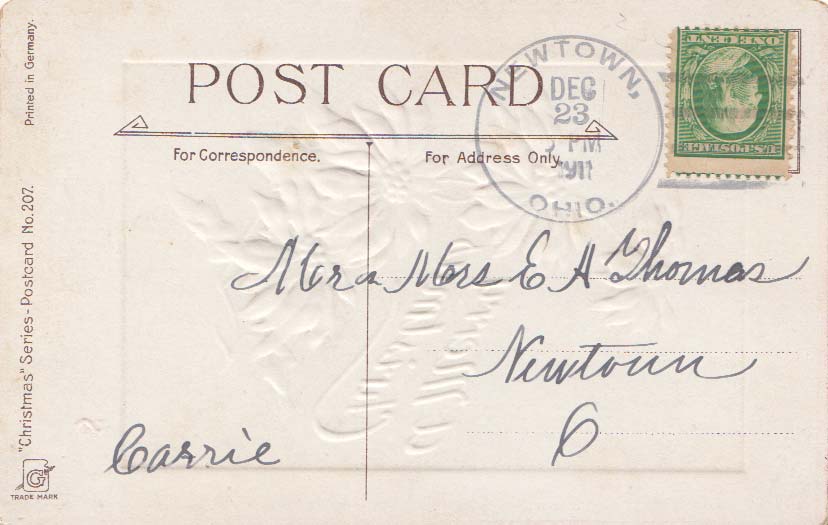 Printed in Germany.
"Christmas" Series - Postcard No. 207.
G
TRADE MARK
POST CARD
For Correspondence.
For Address Only.
NEWTOWN,
DEC
23
PM
1911
OHIO.
U.S. POSTAGE
ONE CENT
Mr & Mrs E A Thomas
Newtown
O
Carrie